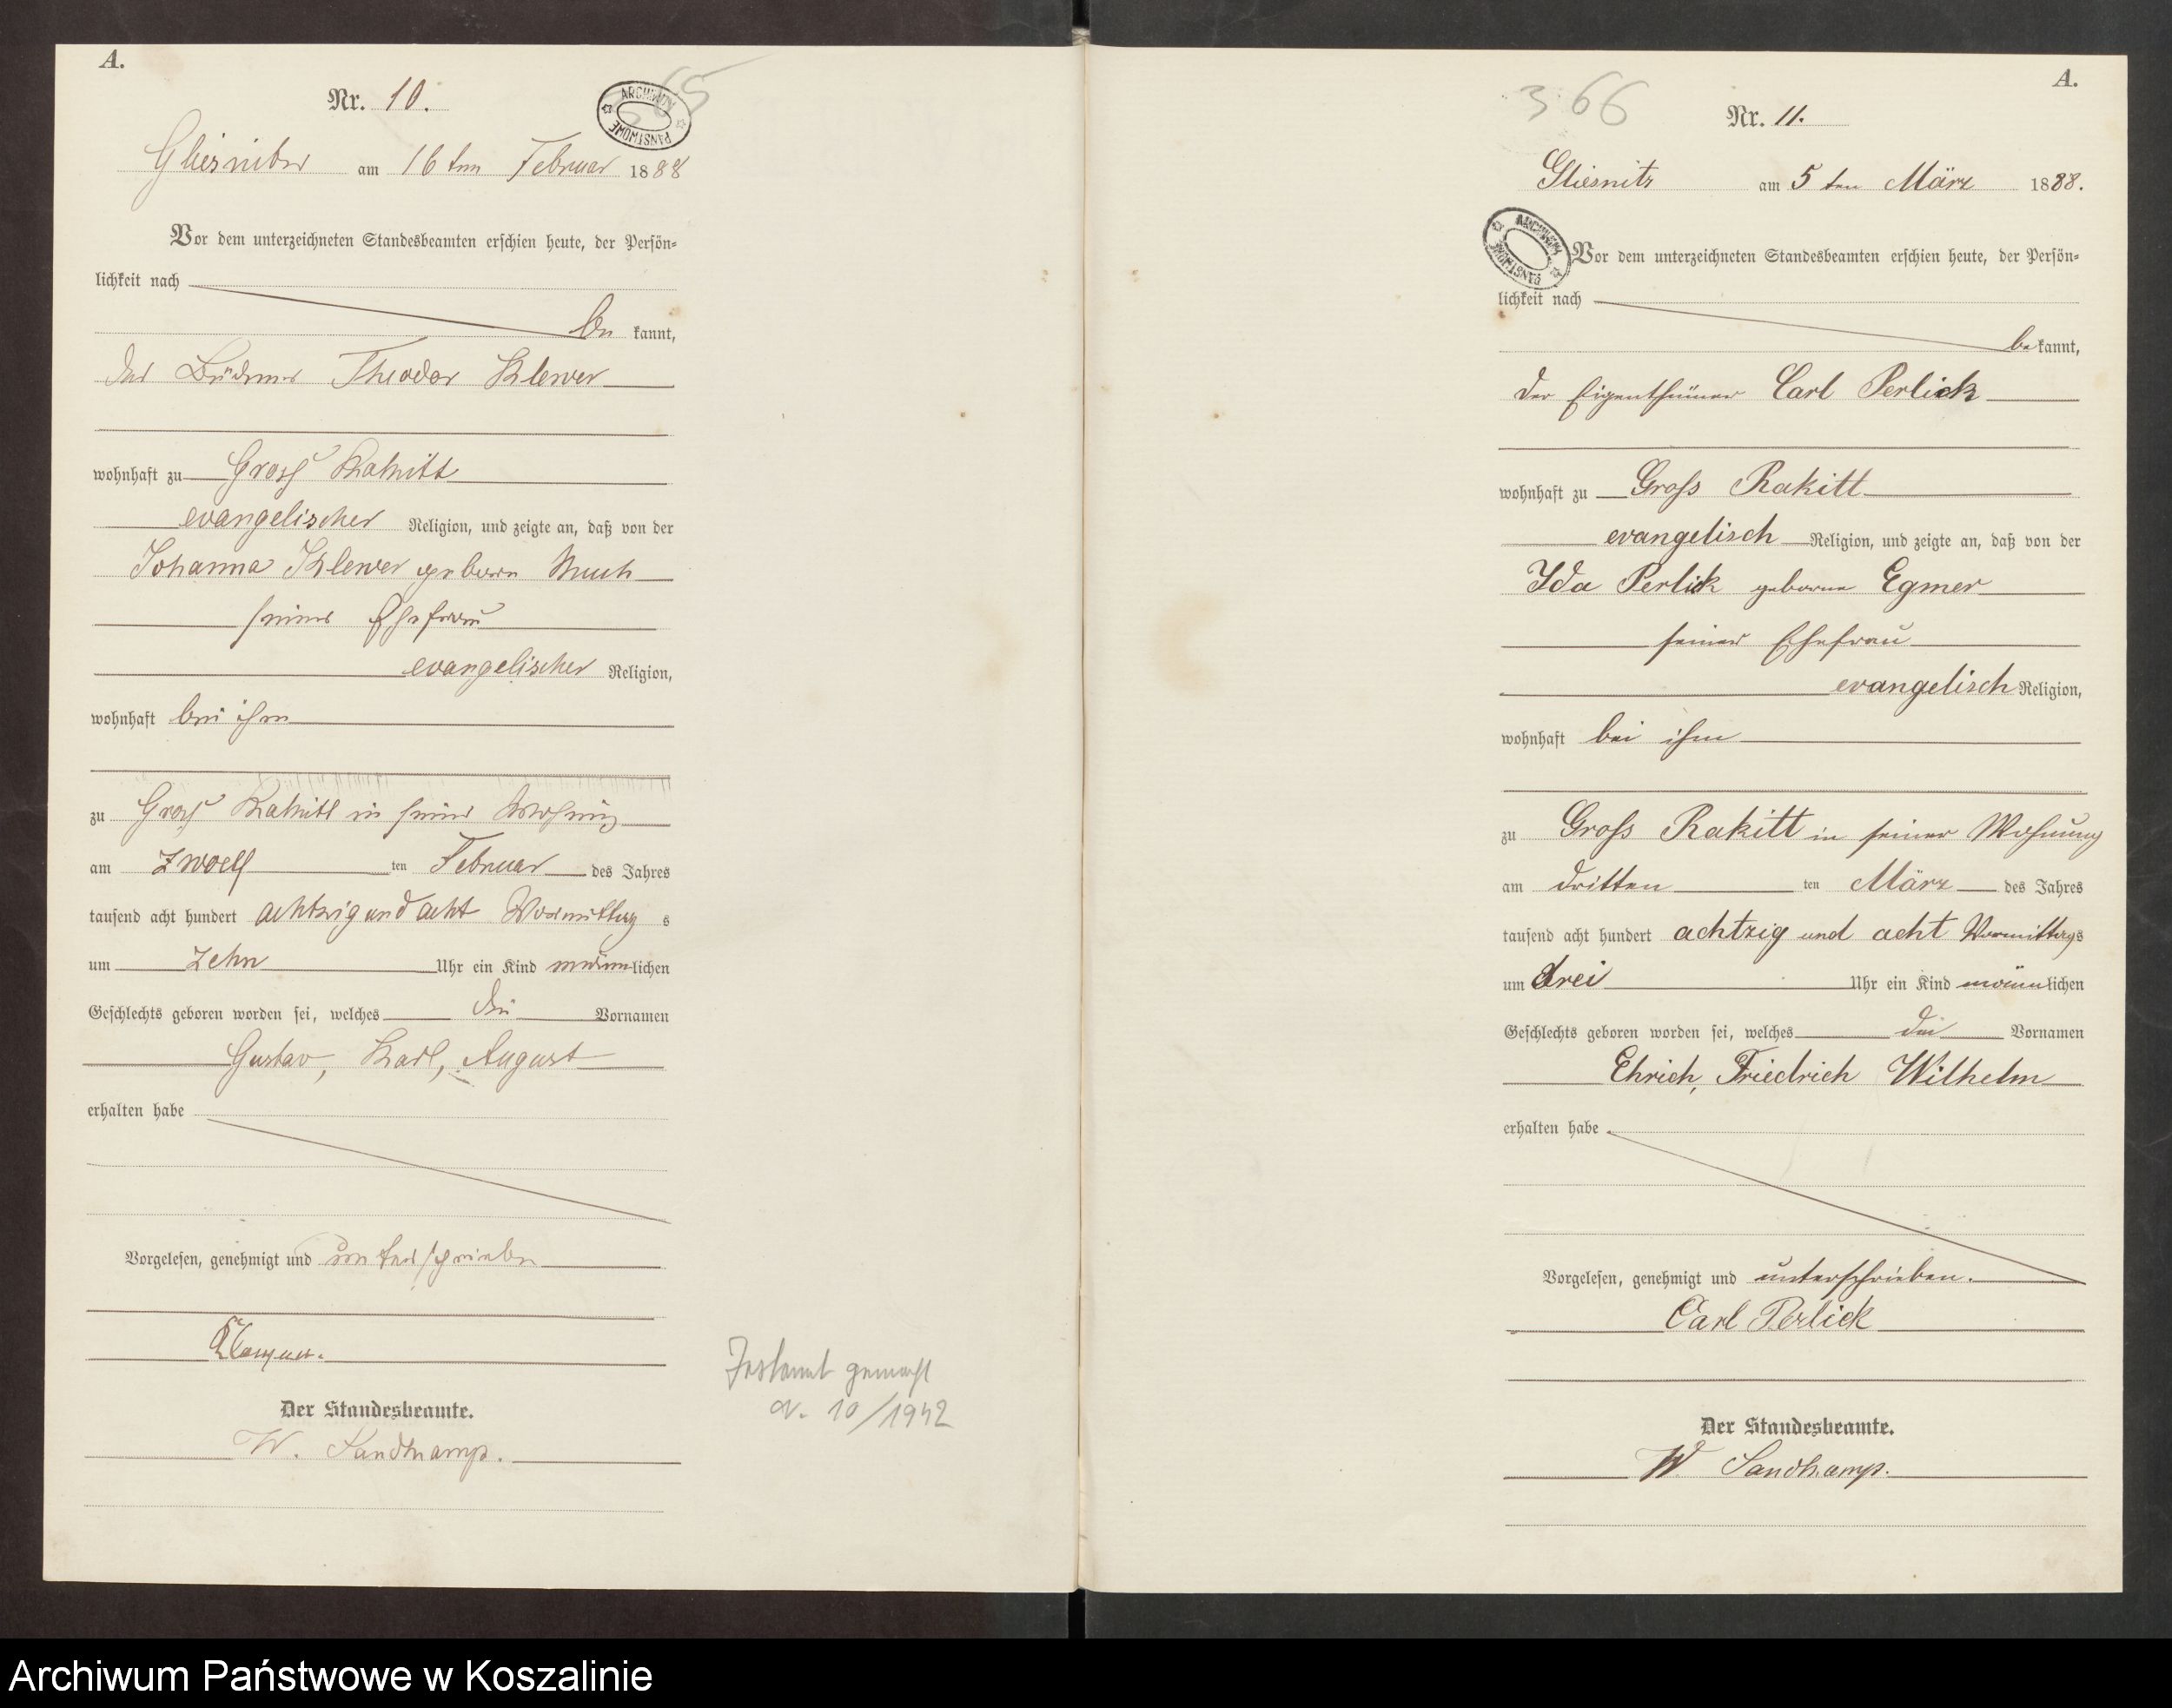 A.
Nr. 10.
365
ARCHIWUM PAŃSTWOWE
am 16 ten Februar 1888
Vor dem unterzeichneten Standesbeamten erschien heute, der Persön-
lichkeit nach
be kannt,
der Büdner Theodor Klewer
wohnhaft zu Gross Rakitt
evangelischer Religion, und zeigte an, daß von der
Johanna Klewer geborne
seiner Ehefrau
evangelischer Religion,
wohnhaft bei ihm
zu Gross Rakitt in seiner Wohnung
am zwoelf ten Februar des Jahres
tausend acht hundert achtzig und acht Vormittag s
um zehn Uhr ein Kind männlichen
Geschlechts geboren worden sei, welches die Vornamen
Gustav, Karl, August
erhalten habe
Vorgelesen, genehmigt und unterschrieben
Der Standesbeamte.
W. Sandkamp.
Testament gemacht
a. 10/1942
A.
366
Nr. 11.
Gliesnitz am 5 ten März 1888.
ARCHIWUM PAŃSTWOWE
Vor dem unterzeichneten Standesbeamten erschien heute, der Persön-
lichkeit nach
be kannt,
der Eigenthümer Carl Perlick
wohnhaft zu Gross Rakitt
evangelisch Religion, und zeigte an, daß von der
Ida Perlick geborne Egmer
seiner Ehefrau
evangelisch Religion,
wohnhaft bei ihm
zu Gross Rakitt in seiner Wohnung
am dritten ten März des Jahres
tausend acht hundert achtzig und acht Vormittags
um drei Uhr ein Kind männlichen
Geschlechts geboren worden sei, welches die Vornamen
Ehrich, Friedrich Wilhelm
erhalten habe
Vorgelesen, genehmigt und unterschrieben.
Carl Perlick
Der Standesbeamte.
W. Sandkamp.
Archiwum Państwowe w Koszalinie